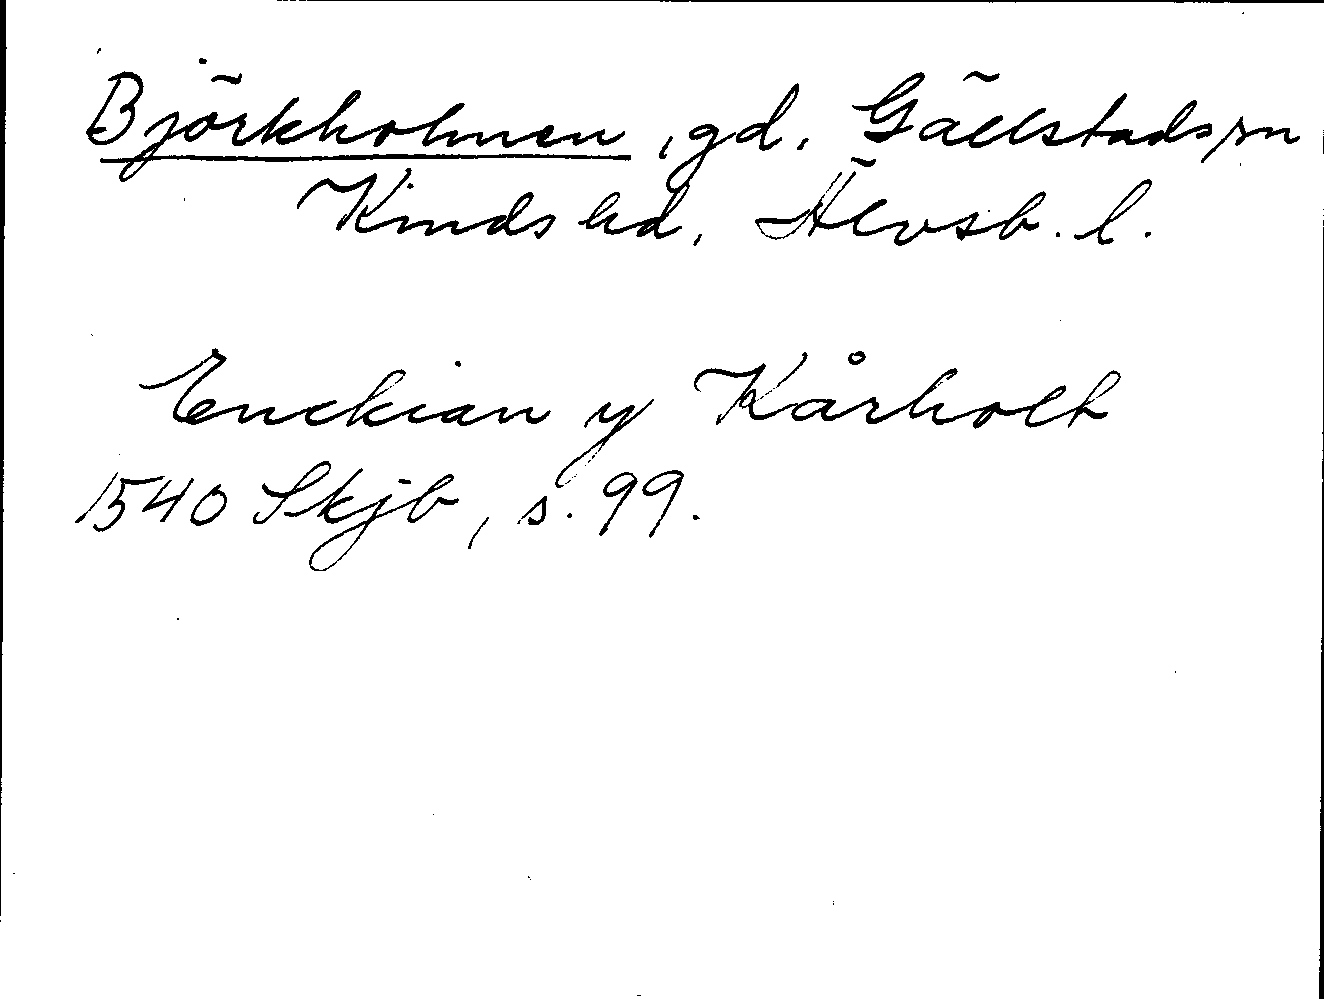 Björkholmen, gd. Gällstads sn
Kinds hd, Älvsb. l.
Enckian y Kårholt
1540 Skjb, s. 99.